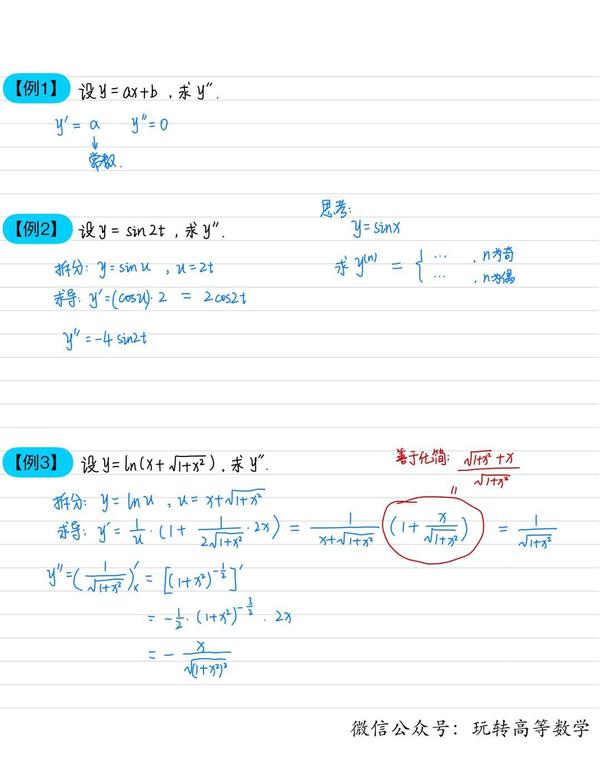 【例1】 设 y = ax+b ，求 y″.
y′ = a y″=0
↓
常数.
【例2】 设 y = sin2t ，求 y″.
拆分: y = sin u , u = 2t
求导: y′=(cosu)·2 = 2cos2t
y″ = -4 sin2t
思考:
y = sinx
求 y⁽ⁿ⁾ = { ··· , n为奇
··· , n为偶
【例3】 设 y = ln(x+√(1+x²)) , 求 y″.
善于化简: (√(1+x²)+x)/√(1+x²)
拆分: y = ln u , u = x+√(1+x²)
求导: y′ = 1/u · (1 + 1/(2√(1+x²)) · 2x) = 1/(x+√(1+x²)) (1 + x/√(1+x²)) = 1/√(1+x²)
y″ = (1/√(1+x²))′ₓ = [(1+x²)^(-1/2)]′
= -1/2 · (1+x²)^(-3/2) · 2x
= - x/√(1+x²)³
微信公众号：玩转高等数学